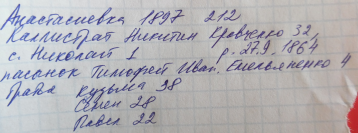 Анастасиевка 1897 212
Каллистрат Никитин Кравченко 32,
с. Николай 1 р. 27.9.1864
пасынок Тимофей Иван. Емельяненко 4
брата Кузьма 38
Семен 28
Павел 22